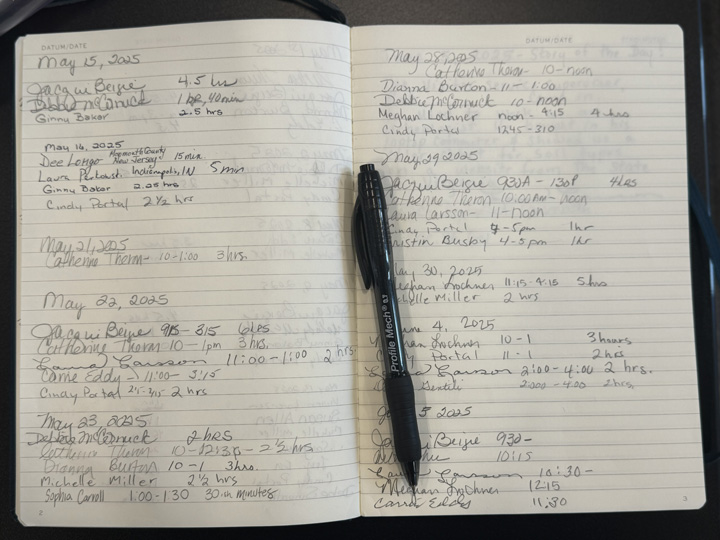 DATUM/DATE
May 15, 2025
Jacqui Beyre 4.5 hrs
Debbie McCormick 1 hr, 40min
Ginny Bakor 2.5 hrs
May 16, 2025
Dee Longo Monmouth County New Jersey 15 min
Laura Indianapolis, IN 5 min
Ginny Bakor 2.25 hrs
Cindy Portal 2 1/2 hrs
May 21, 2025
Catherine Theron - 10-1:00 3 hrs.
May 22, 2025
Jacqui Beyre 915 - 315 6 hrs
Catherine Theron 10 - 1pm 3 hrs.
Laura Larsson 11:00 - 1:00 2 hrs.
Carrie Eddy - 11:00 - 3:15
Cindy Portal 2 hrs
May 23, 2025
Debbie McCormick 2 HRS
Catherine Theron 10 - 12:30 - 2 1/2 hrs
Dianna Burton 10 - 1 3hrs.
Michelle Miller 2 1/2 hrs
Sophia Carroll 1:00 - 1:30 30 minutes
2
DATUM/DATE
May 28, 2025
Catherine Theron - 10 - noon
Dianna Burton - 11 - 1:00
Debbie McCormick 10 - noon
Meghan Lochner noon - 4:15 4 hrs
Cindy Portal 1245 - 310
May 29 2025
Jacqui Beyre 930A - 130P 4 hrs
Catherine Theron 10:00am - noon
Laura Larsson - 11 - noon
Cindy Portal 4 - 5pm 1hr
Kristin Busby 4 - 5pm 1hr
May 30, 2025
Meghan Lochner 11:15 - 4:15 5 hrs
Michelle Miller 2 hrs
June 4, 2025
Lochner 10 - 1 3 hours
Portal 11 - 1 2 hrs
Larsson 2:00 - 4:00 2 hrs.
2:00 - 4:00 2 hrs.
5 2025
Jacqui Beyre 930 -
10:15
Larsson 10:30 -
Meghan Lochner 12:15
Carrie Eddy 11:30
3
Profile Mech® 0.7